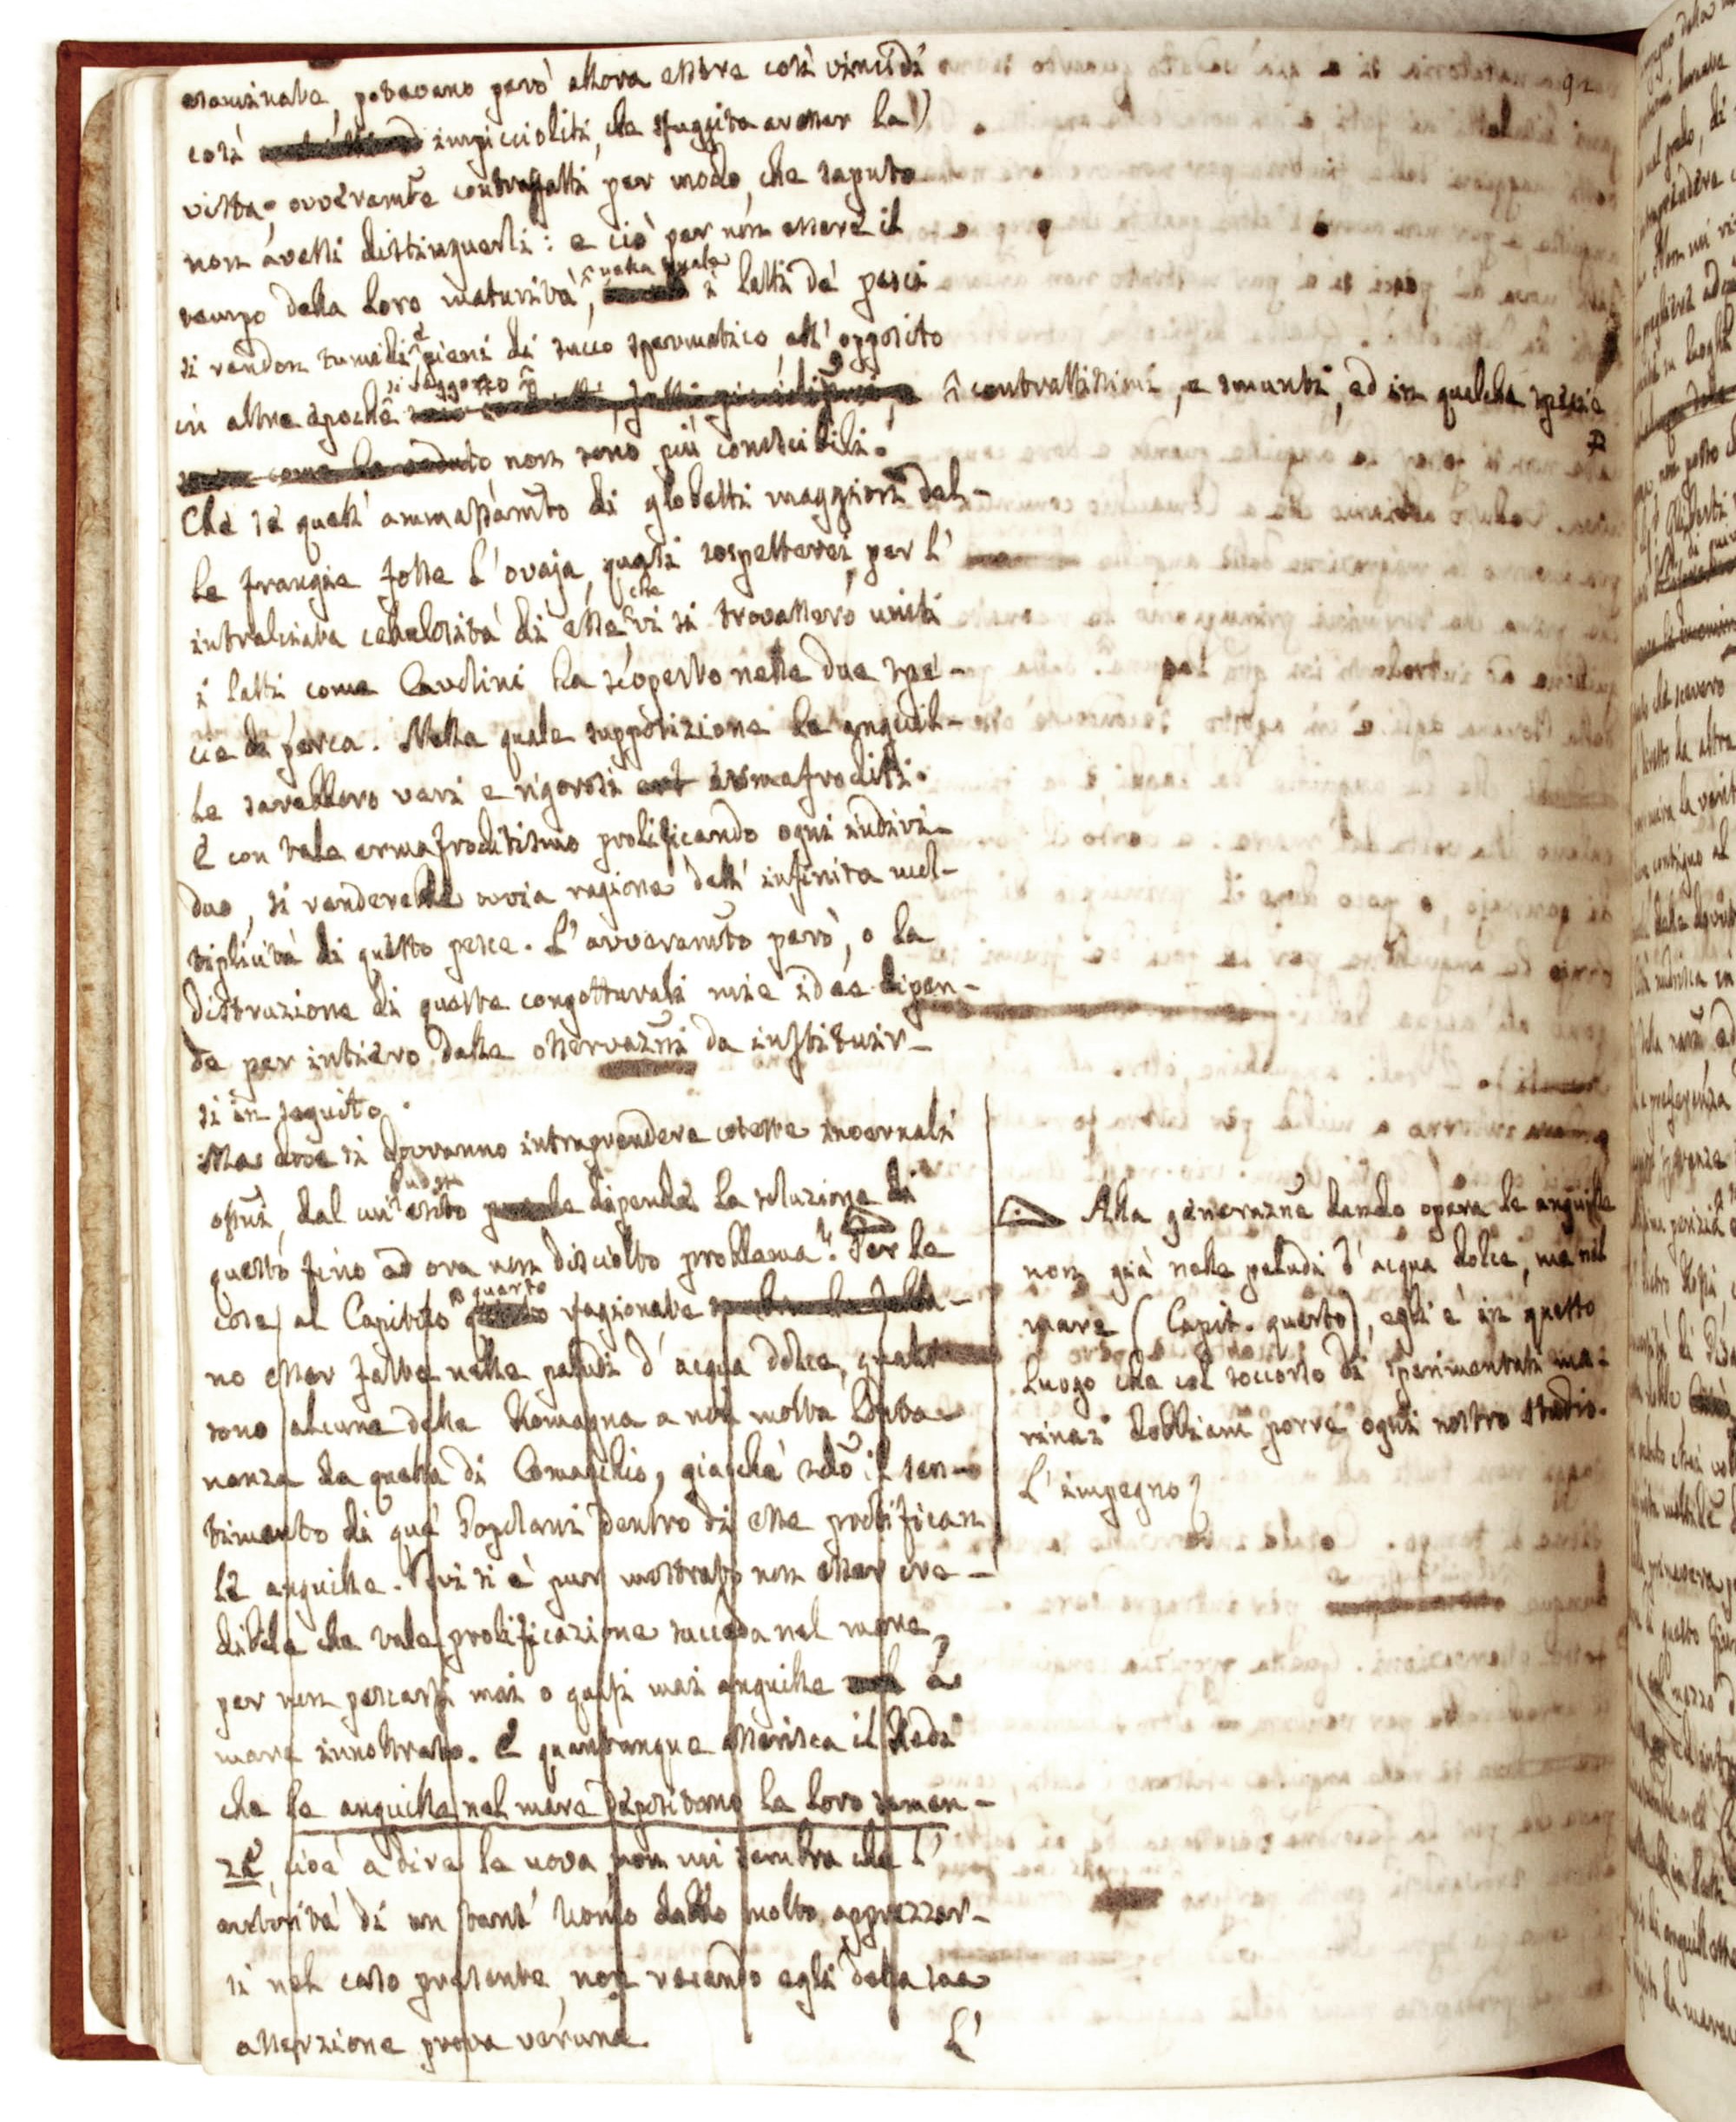 esaminate, potevano però allora essere così vincidi
così impiccioliti, che sfuggita avesser la
vista; ovveramte contraffatti per modo, che saputo
non avessi distinguerli: e ciò per non essere il
tempo della loro maturità, nella quale i latti de' pesci
si rendon tumidi e pieni di succo spermatico, all' opposito
in altre epoche si veggono contrattissimi, e smunti, ed in qualche spezie
non sono più conoscibili.
Che se quell' ammassamto di globetti maggiori del-
le frangie fosse l'ovaja, quasi sospetterei, per l'
intralciata cellulosità di esse che vi si trovassero uniti
i latti come Cavolini ha scoperto nelle due spe-
cie di perca. Nella quale supposizione le anguil-
le sarebbero veri e rigorosi ermafroditi.
E con tale ermafroditismo prolificando ogni indivi-
duo, si renderebbe ovvia ragione dell' infinita mol-
tiplicità di questo pesce. L'avveramto però, o la
distruzione di queste congetturali mie idee dipen-
de per intiero dalle osservazni da instituir-
si in seguito.
Ma dove si dovranno intraprendere coteste
dal cui buon esito dipende la soluzione di
questo fino ad ora non disciolto problema? Per le
cose al Capitolo quarto ragionate
no esser fatte nelle paludi d' acqua dolce, quali
sono alcune della Romagna a non molta lonta-
nanza da quella di Comacchio, giacchè sedo il sen-
timento di que' Popolani dentro di esse prolifican
le anguille. Ivi si è pur mostrato non esser cre-
dibile che tale prolificazione succeda nel mare,
per non pescarsi mai o quasi mai anguille
mare innoltrato. E quantunque asserisca il Redi
che le anguille nel mare depositano la loro semen-
za, cioè a dire le uova, non mi sembra che l'
autorità di un tant' uomo debba molto apprezzar-
si nel caso presente, non recando egli della sua
asserzione prova veruna.
L'
92
Alla generazne dando opera le anguille
non già nelle paludi d' acqua dolce, ma nel
mare (Capit. quarto), egli è in questo
luogo che col soccorso di sperimentati ma-
rinai dobbiam porre ogni nostro studio.
L'impegno